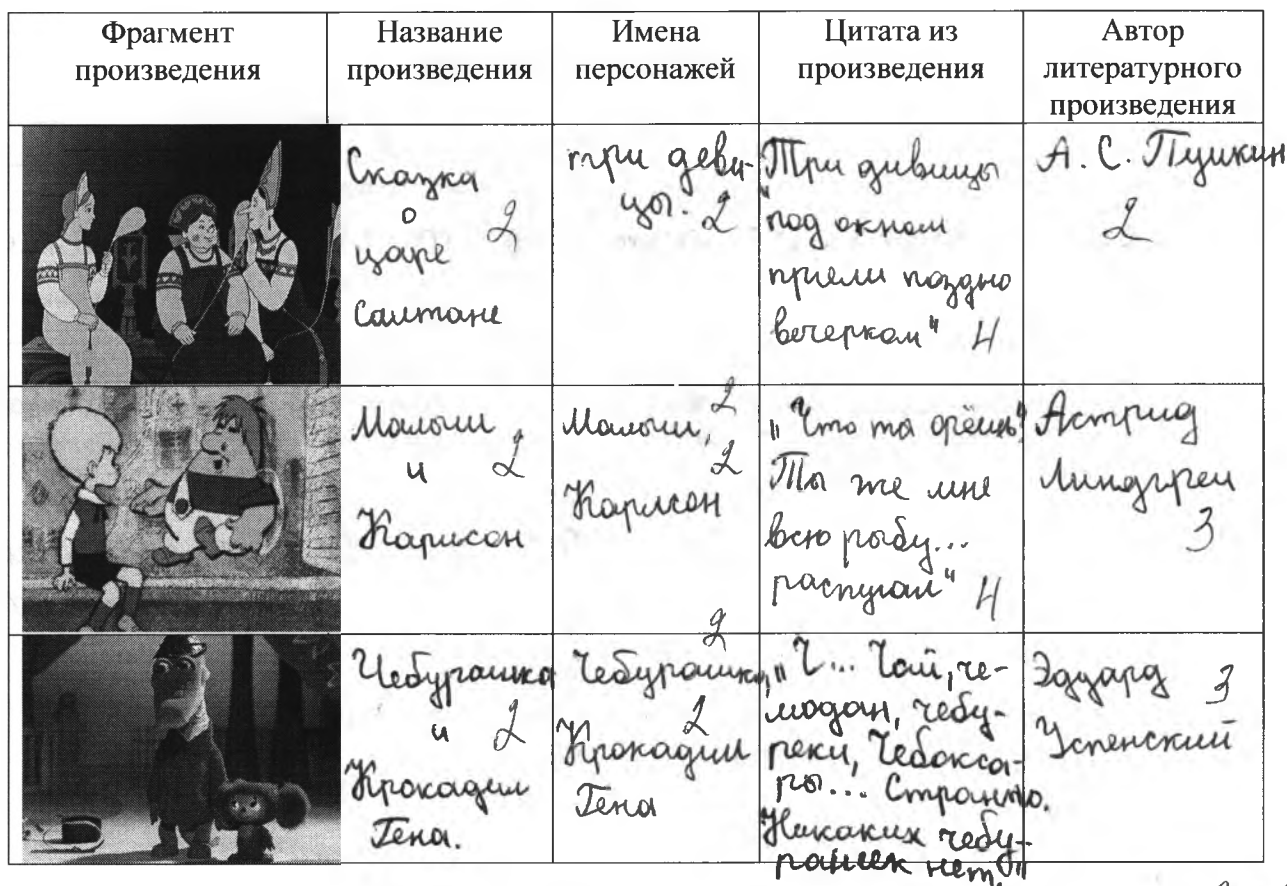 Фрагмент
произведения
Название
произведения
Имена
персонажей
Цитата из
произведения
Автор
литературного
произведения
Сказка
о 2
царе
Салтане
три деви-
цы. 2
"Три дивицы
под окном
пряли поздно
вечерком" 4
А. С. Пушкин
2
Малыш
и 2
Карлсон
Малыш, 2
2
Карлсон
"Что ты орёшь?
Ты же мне
всю рыбу...
распугал" 4
Астрид
Линдгрен
3
Чебурашка
и 2
Крокадил
Гена.
2
Чебурашка,
2
Крокадил
Гена
"Ч... Чай, че-
модан, чебу-
реки, Чебокса-
ры... Странно.
Никаких чебу-
рашек нет"
Эдуард 3
Успенский